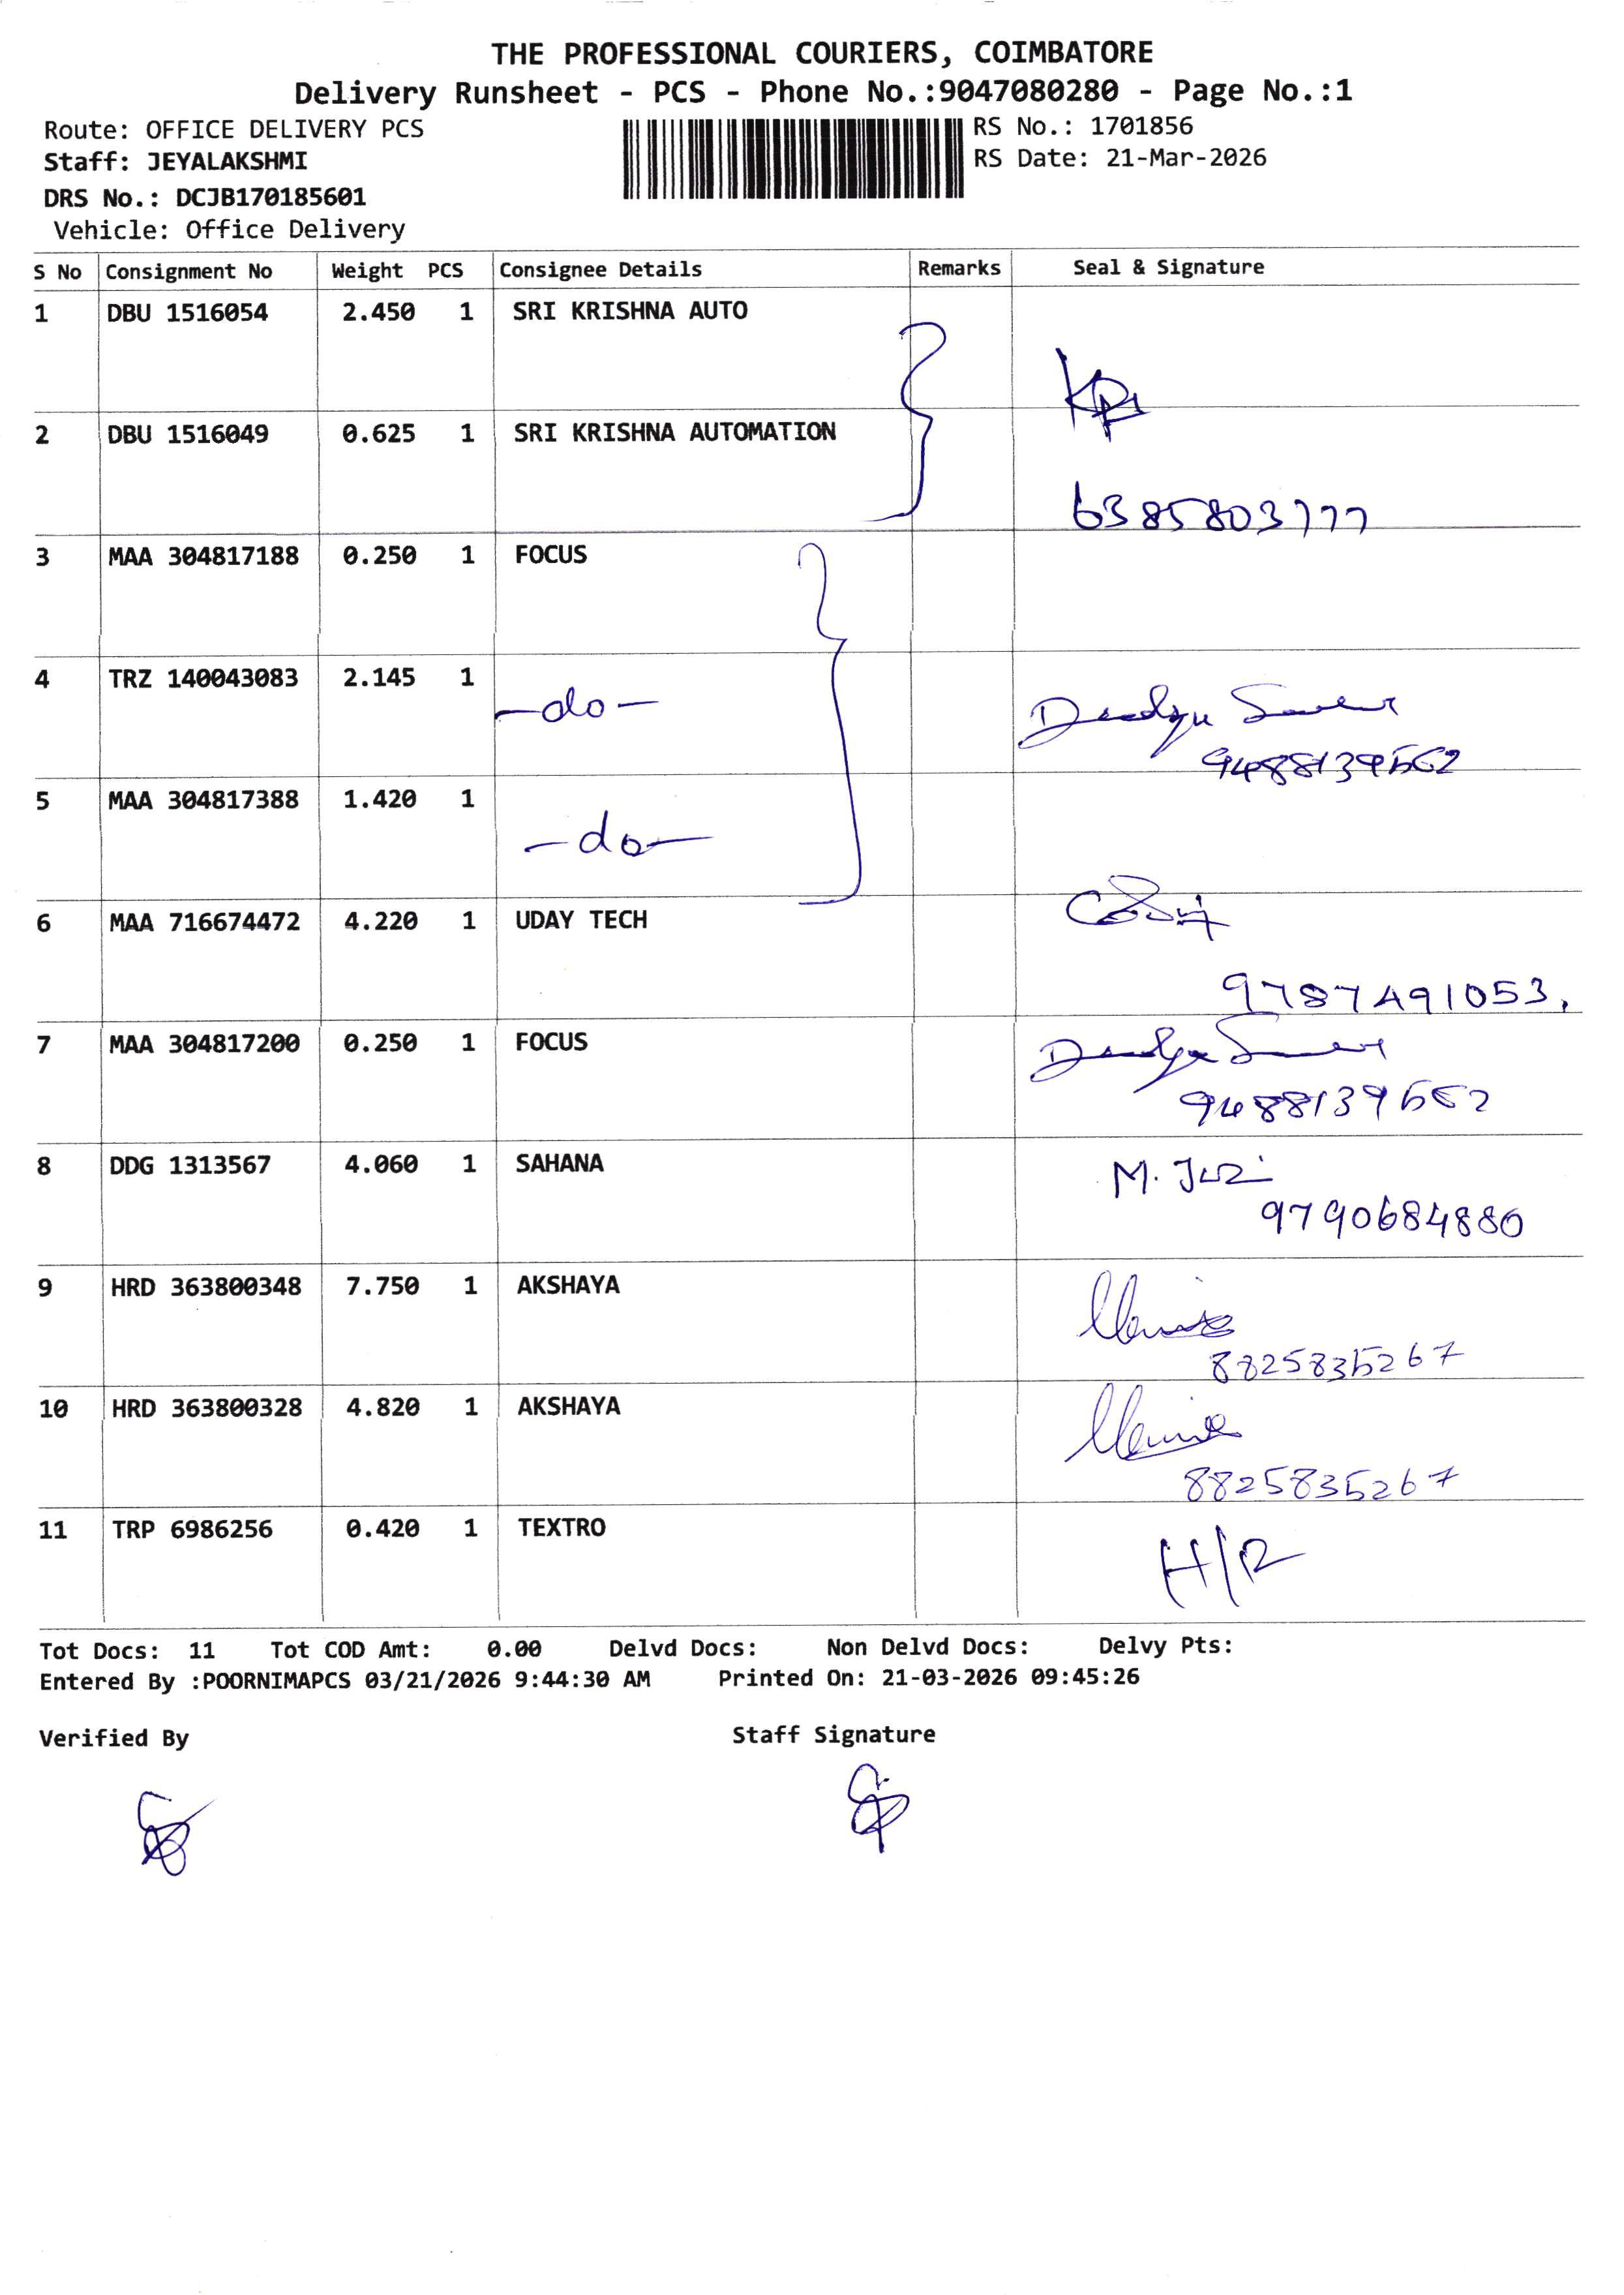 THE PROFESSIONAL COURIERS, COIMBATORE
Delivery Runsheet - PCS - Phone No.:9047080280 - Page No.:1
Route: OFFICE DELIVERY PCS
RS No.: 1701856
Staff: JEYALAKSHMI
RS Date: 21-Mar-2026
DRS No.: DCJB170185601
Vehicle: Office Delivery
S No Consignment No Weight PCS Consignee Details Remarks Seal & Signature
1 DBU 1516054 2.450 1 SRI KRISHNA AUTO
2 DBU 1516049 0.625 1 SRI KRISHNA AUTOMATION
6385803777
3 MAA 304817188 0.250 1 FOCUS
4 TRZ 140043083 2.145 1
-do-
5 MAA 304817388 1.420 1
-do-
6 MAA 716674472 4.220 1 UDAY TECH
9787491053,
7 MAA 304817200 0.250 1 FOCUS
8 DDG 1313567 4.060 1 SAHANA
M.
9790684880
9 HRD 363800348 7.750 1 AKSHAYA
8825835267
10 HRD 363800328 4.820 1 AKSHAYA
8825835267
11 TRP 6986256 0.420 1 TEXTRO
H/R
Tot Docs: 11 Tot COD Amt: 0.00 Delvd Docs: Non Delvd Docs: Delvy Pts:
Entered By :POORNIMAPCS 03/21/2026 9:44:30 AM Printed On: 21-03-2026 09:45:26
Verified By Staff Signature